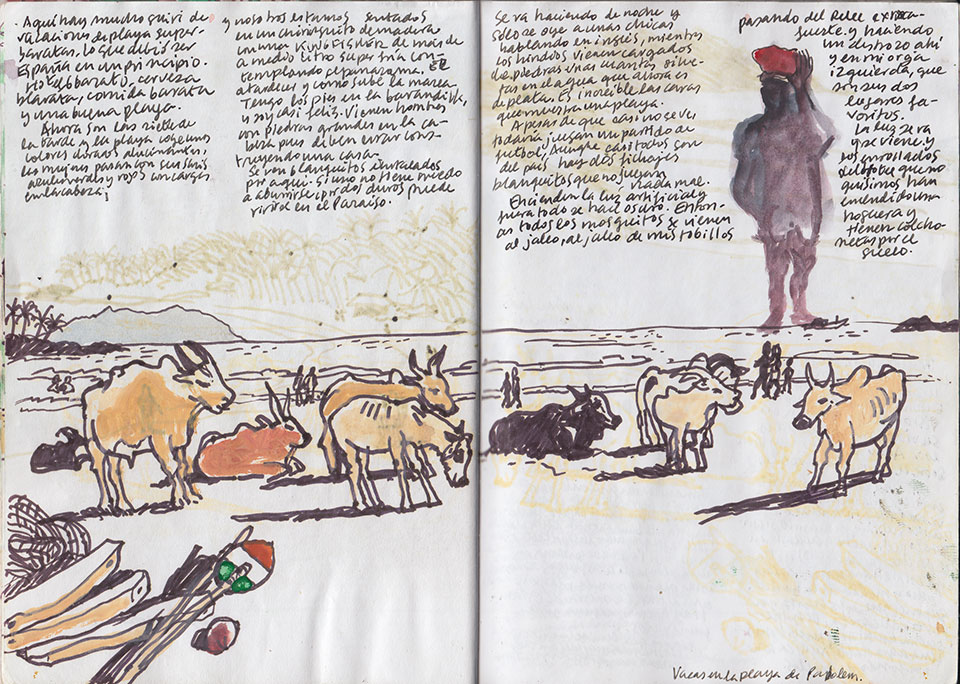 . Aquí hay mucho guiri de
vacaciones de playa super-
baratas, lo que debió ser
España en un principio.
Hotel barato, cerveza
barata, comida barata
y una buena playa.
Ahora son las siete de
la tarde y la playa coge unos
colores dorados alucinantes.
Las mujeres pasan con sus saris
azules verdes y rojos con cargas
en la cabeza;
y nosotros estamos sentados
en un chiringuito de madera
con una KINGFISHER de más de
medio litro super fría con-
templando el panorama. El
atardecer y como sube la marea.
Tengo los pies en la barandilla,
y soy casi feliz. Vienen hombres
con piedras grandes en la ca-
beza pues deben estar cons-
truyendo una casa.
Se ven blanquitos instalados
por aquí. Si uno no tiene miedo
a aburrirse, por dos duros puede
vivir en el Paraiso.
Se va haciendo de noche y
solo se oye a unas chicas
hablando en inglés, mientras
los hindús vienen cargados
de piedras unas cuantas silue-
tas en el agua que ahora es
de plata. Es increible las caras
que muestra una playa.
A pesar de que casi no se ve,
todavía juegan un partido de
futbol, Aunque casi todos son
del país hay dos fichajes
blanquitos que no juegan
nada mal.
Encienden la luz artificial y
fuera todo se hace oscuro. Enton-
ces todos los mosquitos se vienen
al jaleo, al jaleo de mis tobillos
pasando del Relec extra-
fuerte y haciendo
un destrozo ahí
y en mi oreja
izquierda, que
son sus dos
lugares fa-
voritos.
La luz se va
y se viene. y
los enrollados
del garito que no
quisimos han
encendido una
hoguera y
tienen colcho-
netas por el
suelo.
Vacas en la playa de Patolem.